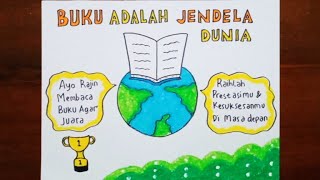 BUKU ADALAH JENDELA
DUNIA
Ayo Rajin
Membaca
Buku Agar
Juara
Raihlah
Prestasimu &
Kesuksesanmu
Di Masa depan
1